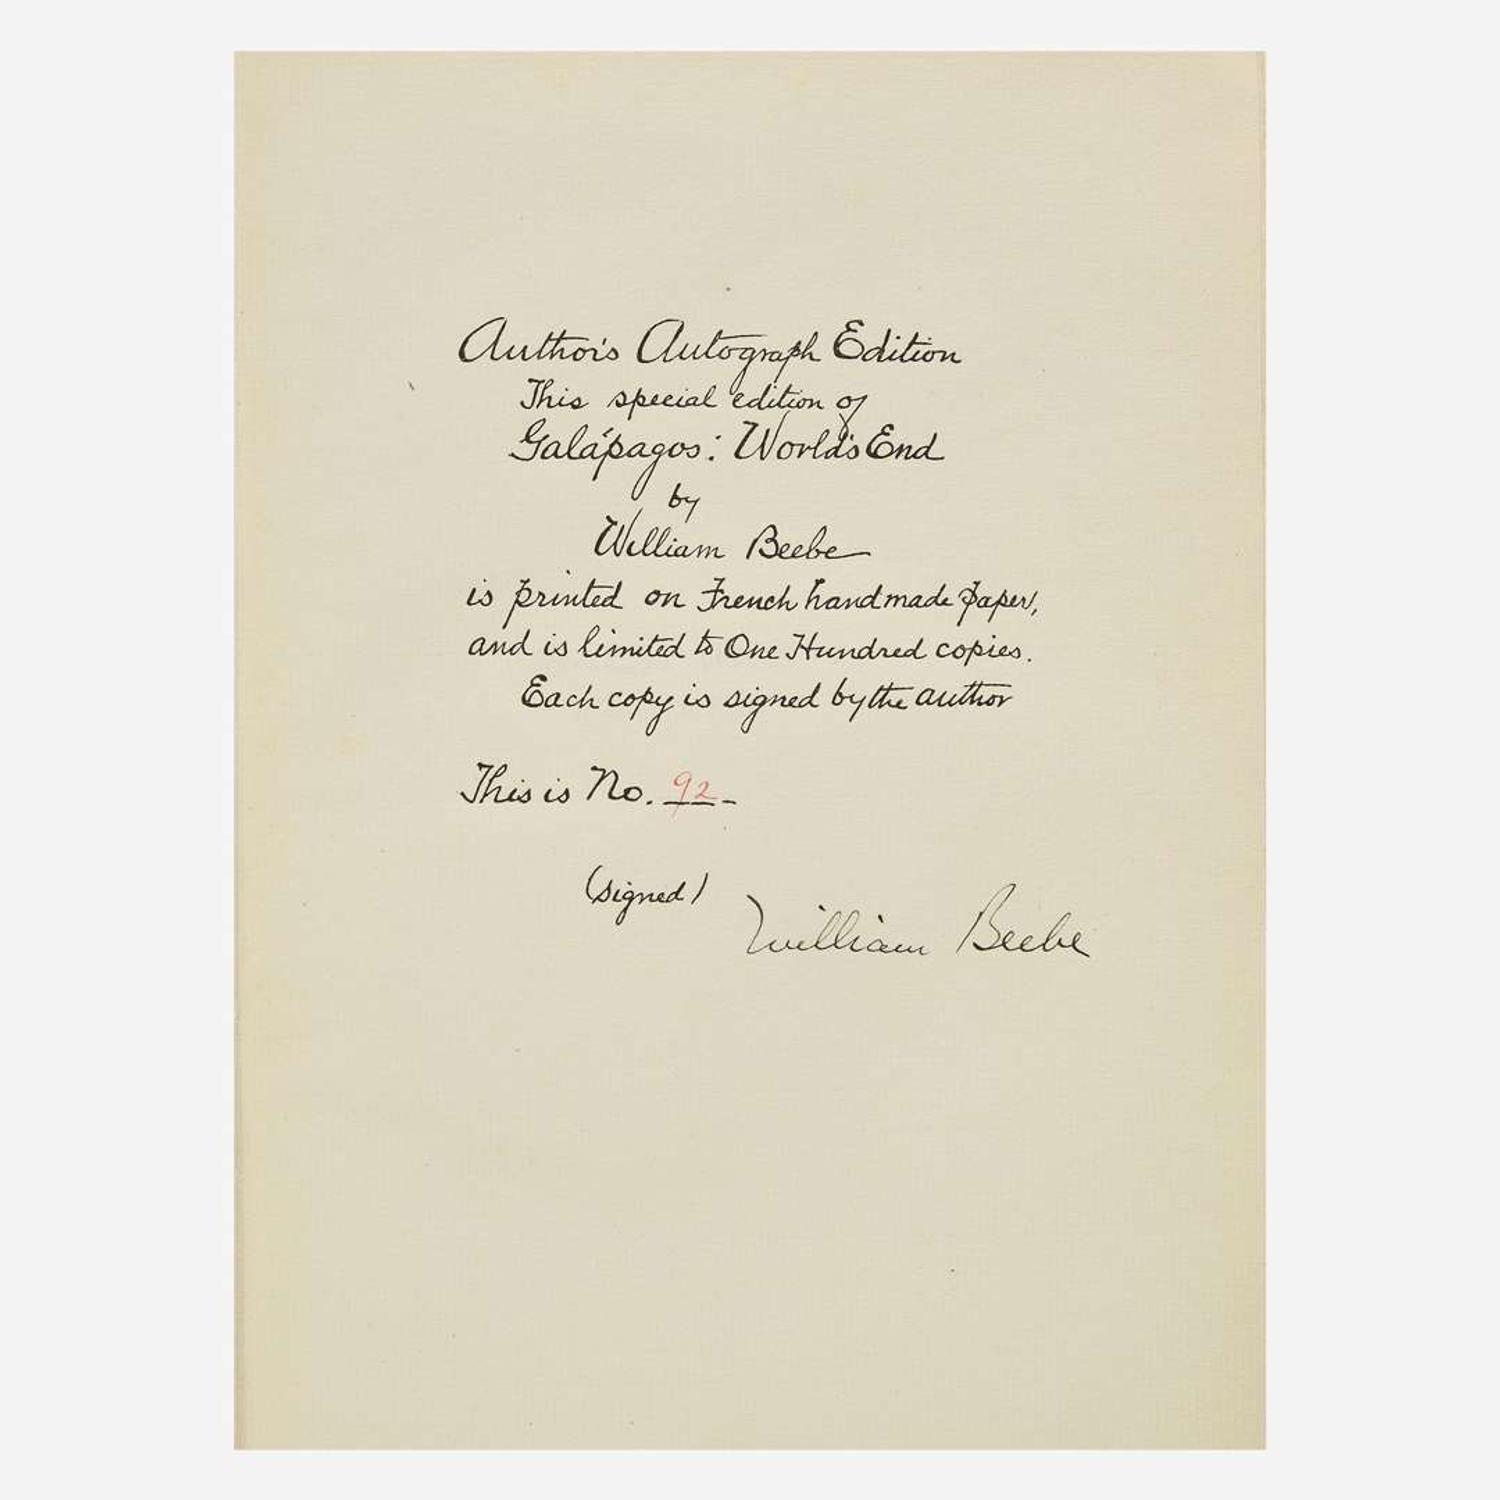 Author's Autograph Edition
This special edition of
Galápagos: World's End
by
William Beebe
is printed on French handmade paper,
and is limited to One Hundred copies.
Each copy is signed by the author
This is No. 92
(signed)
William Beebe